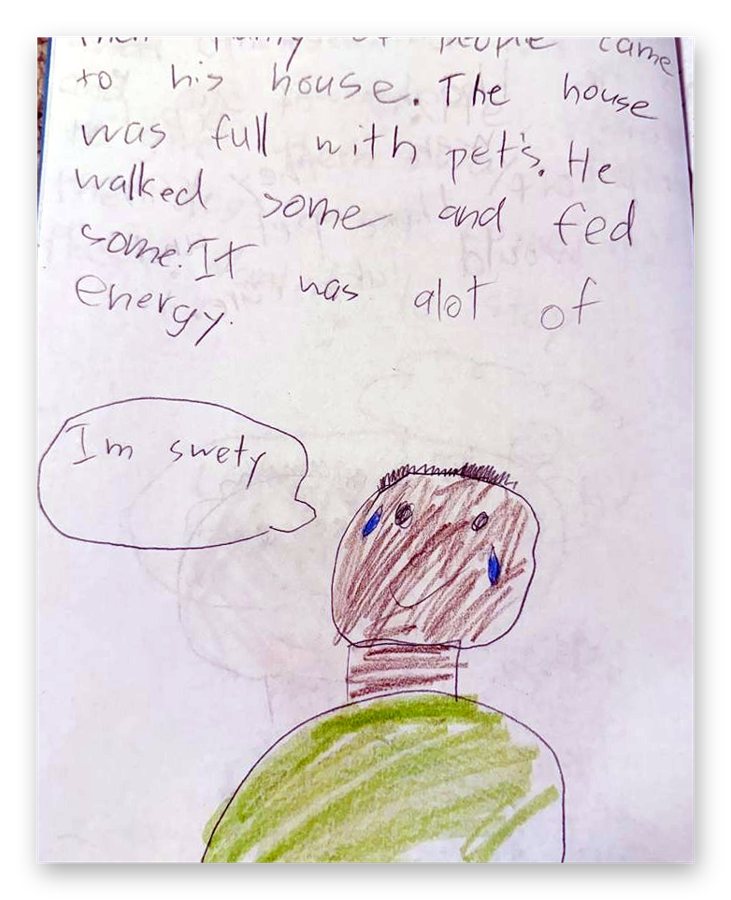 people came
to his house. The house
was full with pet's. He
walked some and fed
some. It was alot of
energy.
Im swety